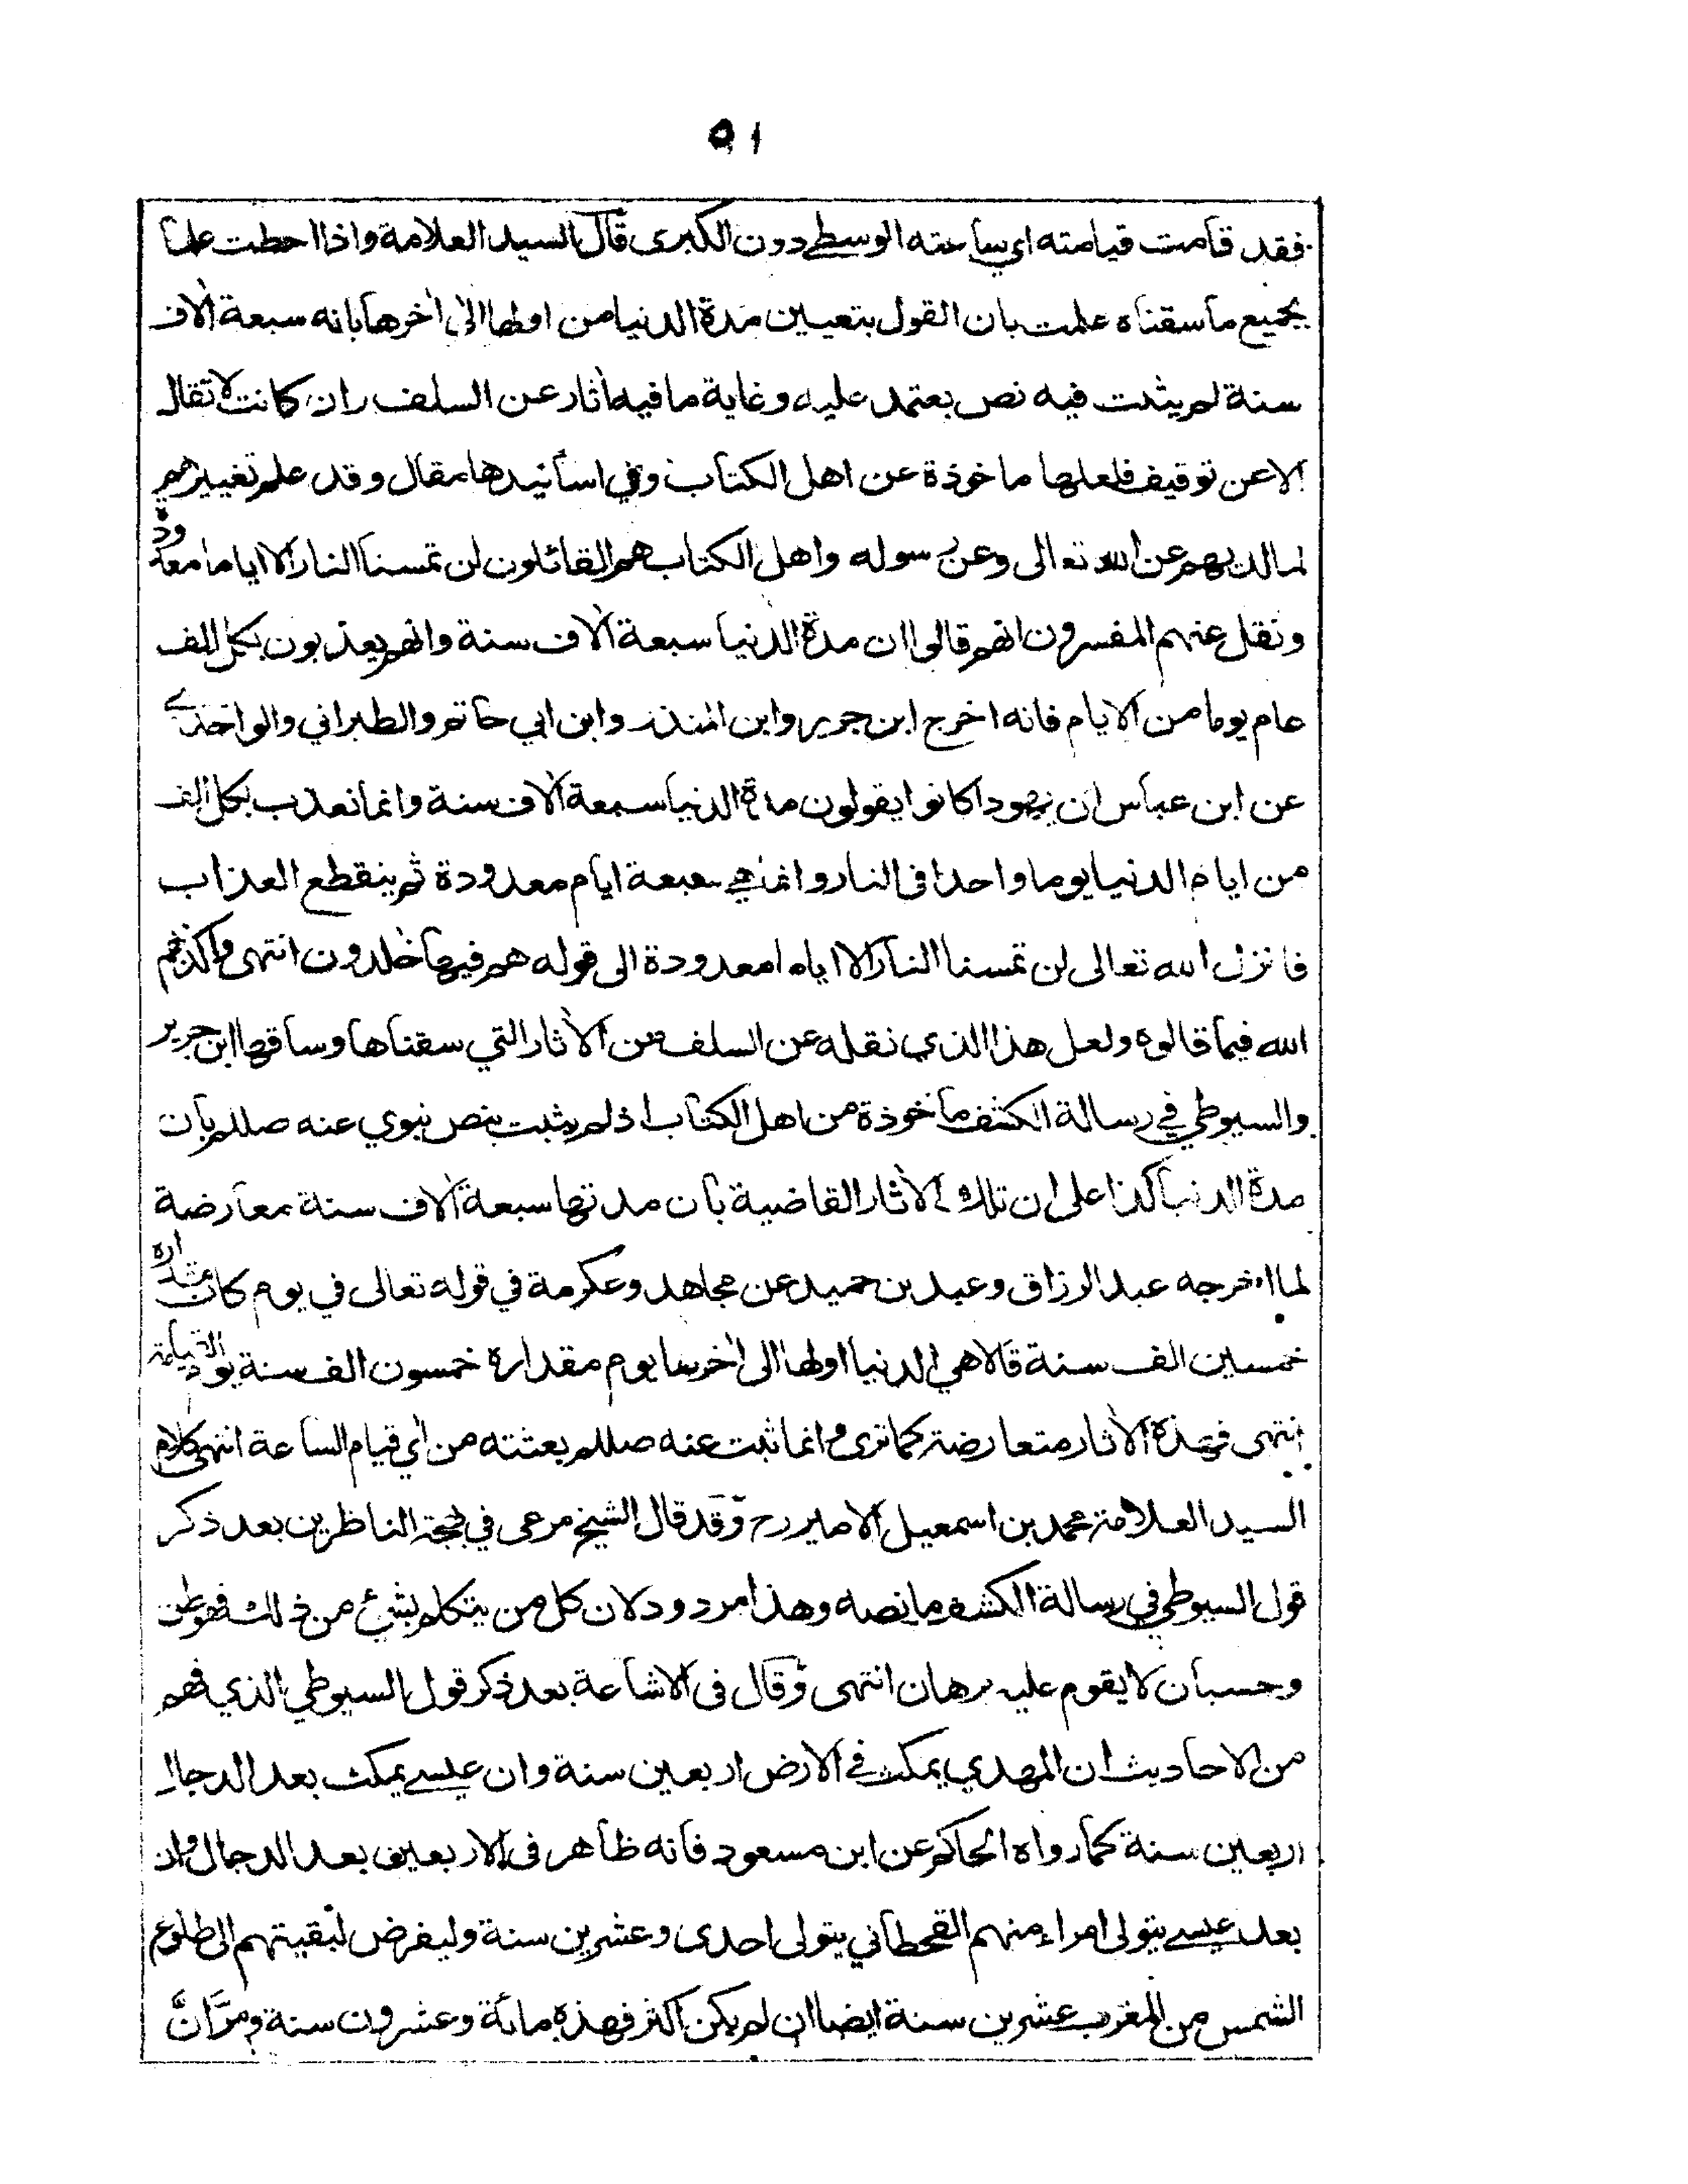 ٥١
فقد قامت قيامته اي ساعته الوسطے دون الكبرى قال السيد العلامة واذا احطت علما
بجميع ما سقناه علمت بان القول بتعيين مدة الدنيا من اولها الى اٰخرها بانه سبعة اٰلاف
سنة لم يثبت فيه نص يعتمد عليه وغاية ما فيه اٰثار عن السلف وان كانت لا تقال
الا عن توقيف فلعلها ماخوذة عن اهل الكتاب وفي اسانيدها مقال وقد علم تغييرهم
لما لديهم عن الله تعالى وعن رسوله واهل الكتاب هم القائلون لن تمسنا النار الا اياما معدودة
ونقل عنهم المفسرون انهم قالوا ان مدة الدنيا سبعة اٰلاف سنة وانهم يعذبون بكل الف
عام يوما من الايام فانه اخرج ابن جرير وابن المنذر وابن ابي حاتم والطبراني والواحدے
عن ابن عباس ان يهودا كانوا يقولون مدة الدنيا سبعة اٰلاف سنة وانما نعذب بكل الف
من ايام الدنيا يوما واحدا في النار وانما هي سبعة ايام معدودة ثم ينقطع العذاب
فانزل الله تعالى لن تمسنا النار الا اياما معدودة الى قوله هم فيها خٰلدون انتهى واكذبهم
الله فيما قالوه ولعل هذا الذي نقله عن السلف من الاٰثار التي سقناها وساقها ابن جرير
والسيوطي في رسالة الكشف ماخوذة من اهل الكتاب اذ لم يثبت بنص نبوي عنه صللم بان
مدة الدنيا كذا على ان تلك الاٰثار القاضية بان مدتها سبعة اٰلاف سنة معارضة
لما اخرجه عبد الرزاق وعبد بن حميد عن مجاهد وعكرمة في قوله تعالى في يوم كان مقداره
خمسين الف سنة قالا هي الدنيا اولها الى اٰخرها يوم مقداره خمسون الف سنة يوم القيامة
انتهى فهذه الاٰثار متعارضة كما ترى وانما ثبت عنه صللم بعثته من اي قيام الساعة انتهى كلام
السيد العلامة محمد بن اسمعيل الامير رح وقد قال الشيخ مرعى في بهجة الناظرين بعد ذكر
قول السيوطي في رسالة الكشف ما نصه وهذا مردود لان كل من يتكلم بشئ من ذلك فهو ظن
وحسبان لا يقوم عليه برهان انتهى وقال في الاشاعة بعد ذكر قول السيوطي الذي فهم
من الاحاديث ان المهدي يمكث في الارض اربعين سنة وان عيسے يمكث بعد الدجال
اربعين سنة كما رواه الحاكم عن ابن مسعود فانه ظاهر في الاربعين بعد الدجال وان
بعد عيسے يتولى امراء منهم القحطاني يتولى احدى وعشرين سنة وليفرض لبقيتهم الى طلوع
الشمس من المغرب عشرين سنة ايضا ان لم يكن اكثر فهذه مائة وعشرون سنة ومر ان